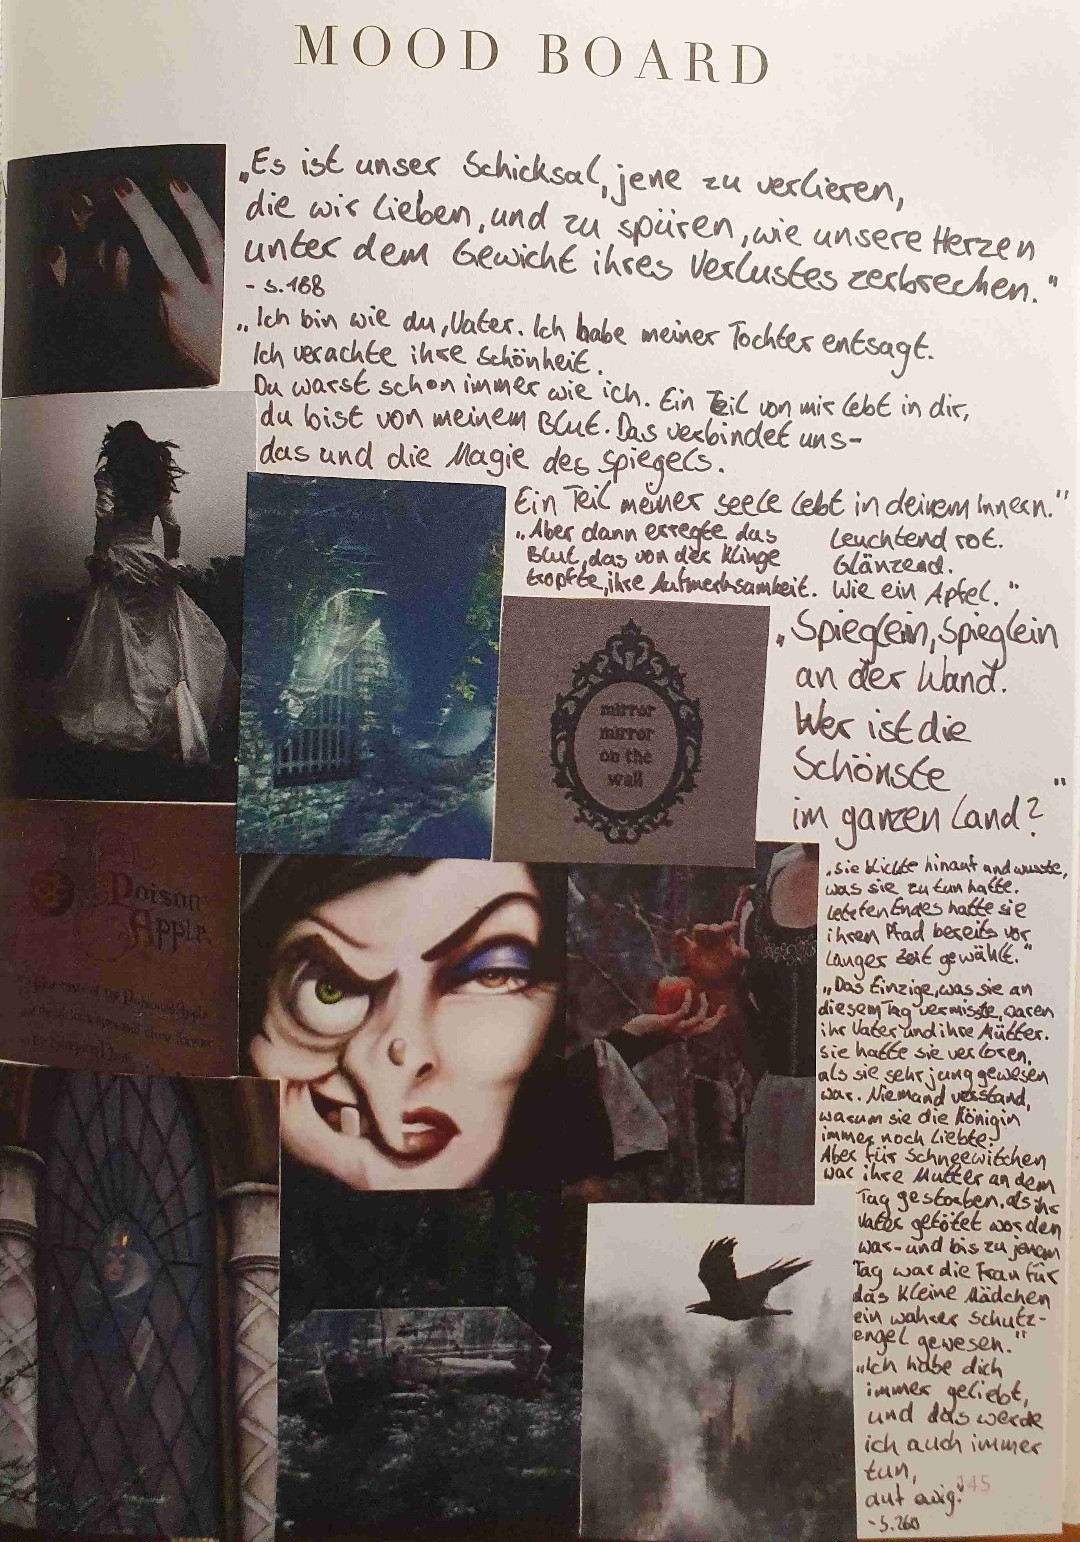 MOOD BOARD
„Es ist unser Schicksal, jene zu verlieren,
die wir lieben, und zu spüren, wie unsere Herzen
unter dem Gewicht ihres Verlustes zerbrechen."
- S.188
„Ich bin wie du, Vater. Ich habe meiner Tochter entsagt.
Ich verachte ihre Schönheit.
Du warst schon immer wie ich. Ein Teil von mir lebt in dir,
du bist von meinem Blut. Das verbindet uns-
das und die Magie des Spiegels.
Ein Teil meiner Seele lebt in deinem Innern."
„Aber dann erregte das
Blut, das von der Klinge
tropfte, ihre Aufmerksamkeit.
Leuchtend rot.
Glänzend.
Wie ein Apfel."
mirror
mirror
on the
wall
„Spieglein, Spieglein
an der Wand.
Wer ist die
Schönste
im ganzen Land?"
Poison
Apple
„Sie blickte hinauf und wusste,
was sie zu tun hatte.
Letzten Endes hatte sie
ihren Pfad bereits vor
langer Zeit gewählt."
„Das Einzige, was sie an
diesem Tag vermisste, waren
ihr Vater und ihre Mütter.
Sie hatte sie verloren,
als sie sehr jung gewesen
war. Niemand verstand,
warum sie die Königin
immer noch liebte.
Aber für Schneewitchen
war ihre Mutter an dem
Tag gestorben, als ihr
Vater getötet worden
war- und bis zu jenem
Tag war die Frau für
das kleine Mädchen
ein wahrer Schutz-
engel gewesen."
„Ich habe dich
immer geliebt,
und das werde
ich auch immer
tun,
auf ewig."
- S.260
145